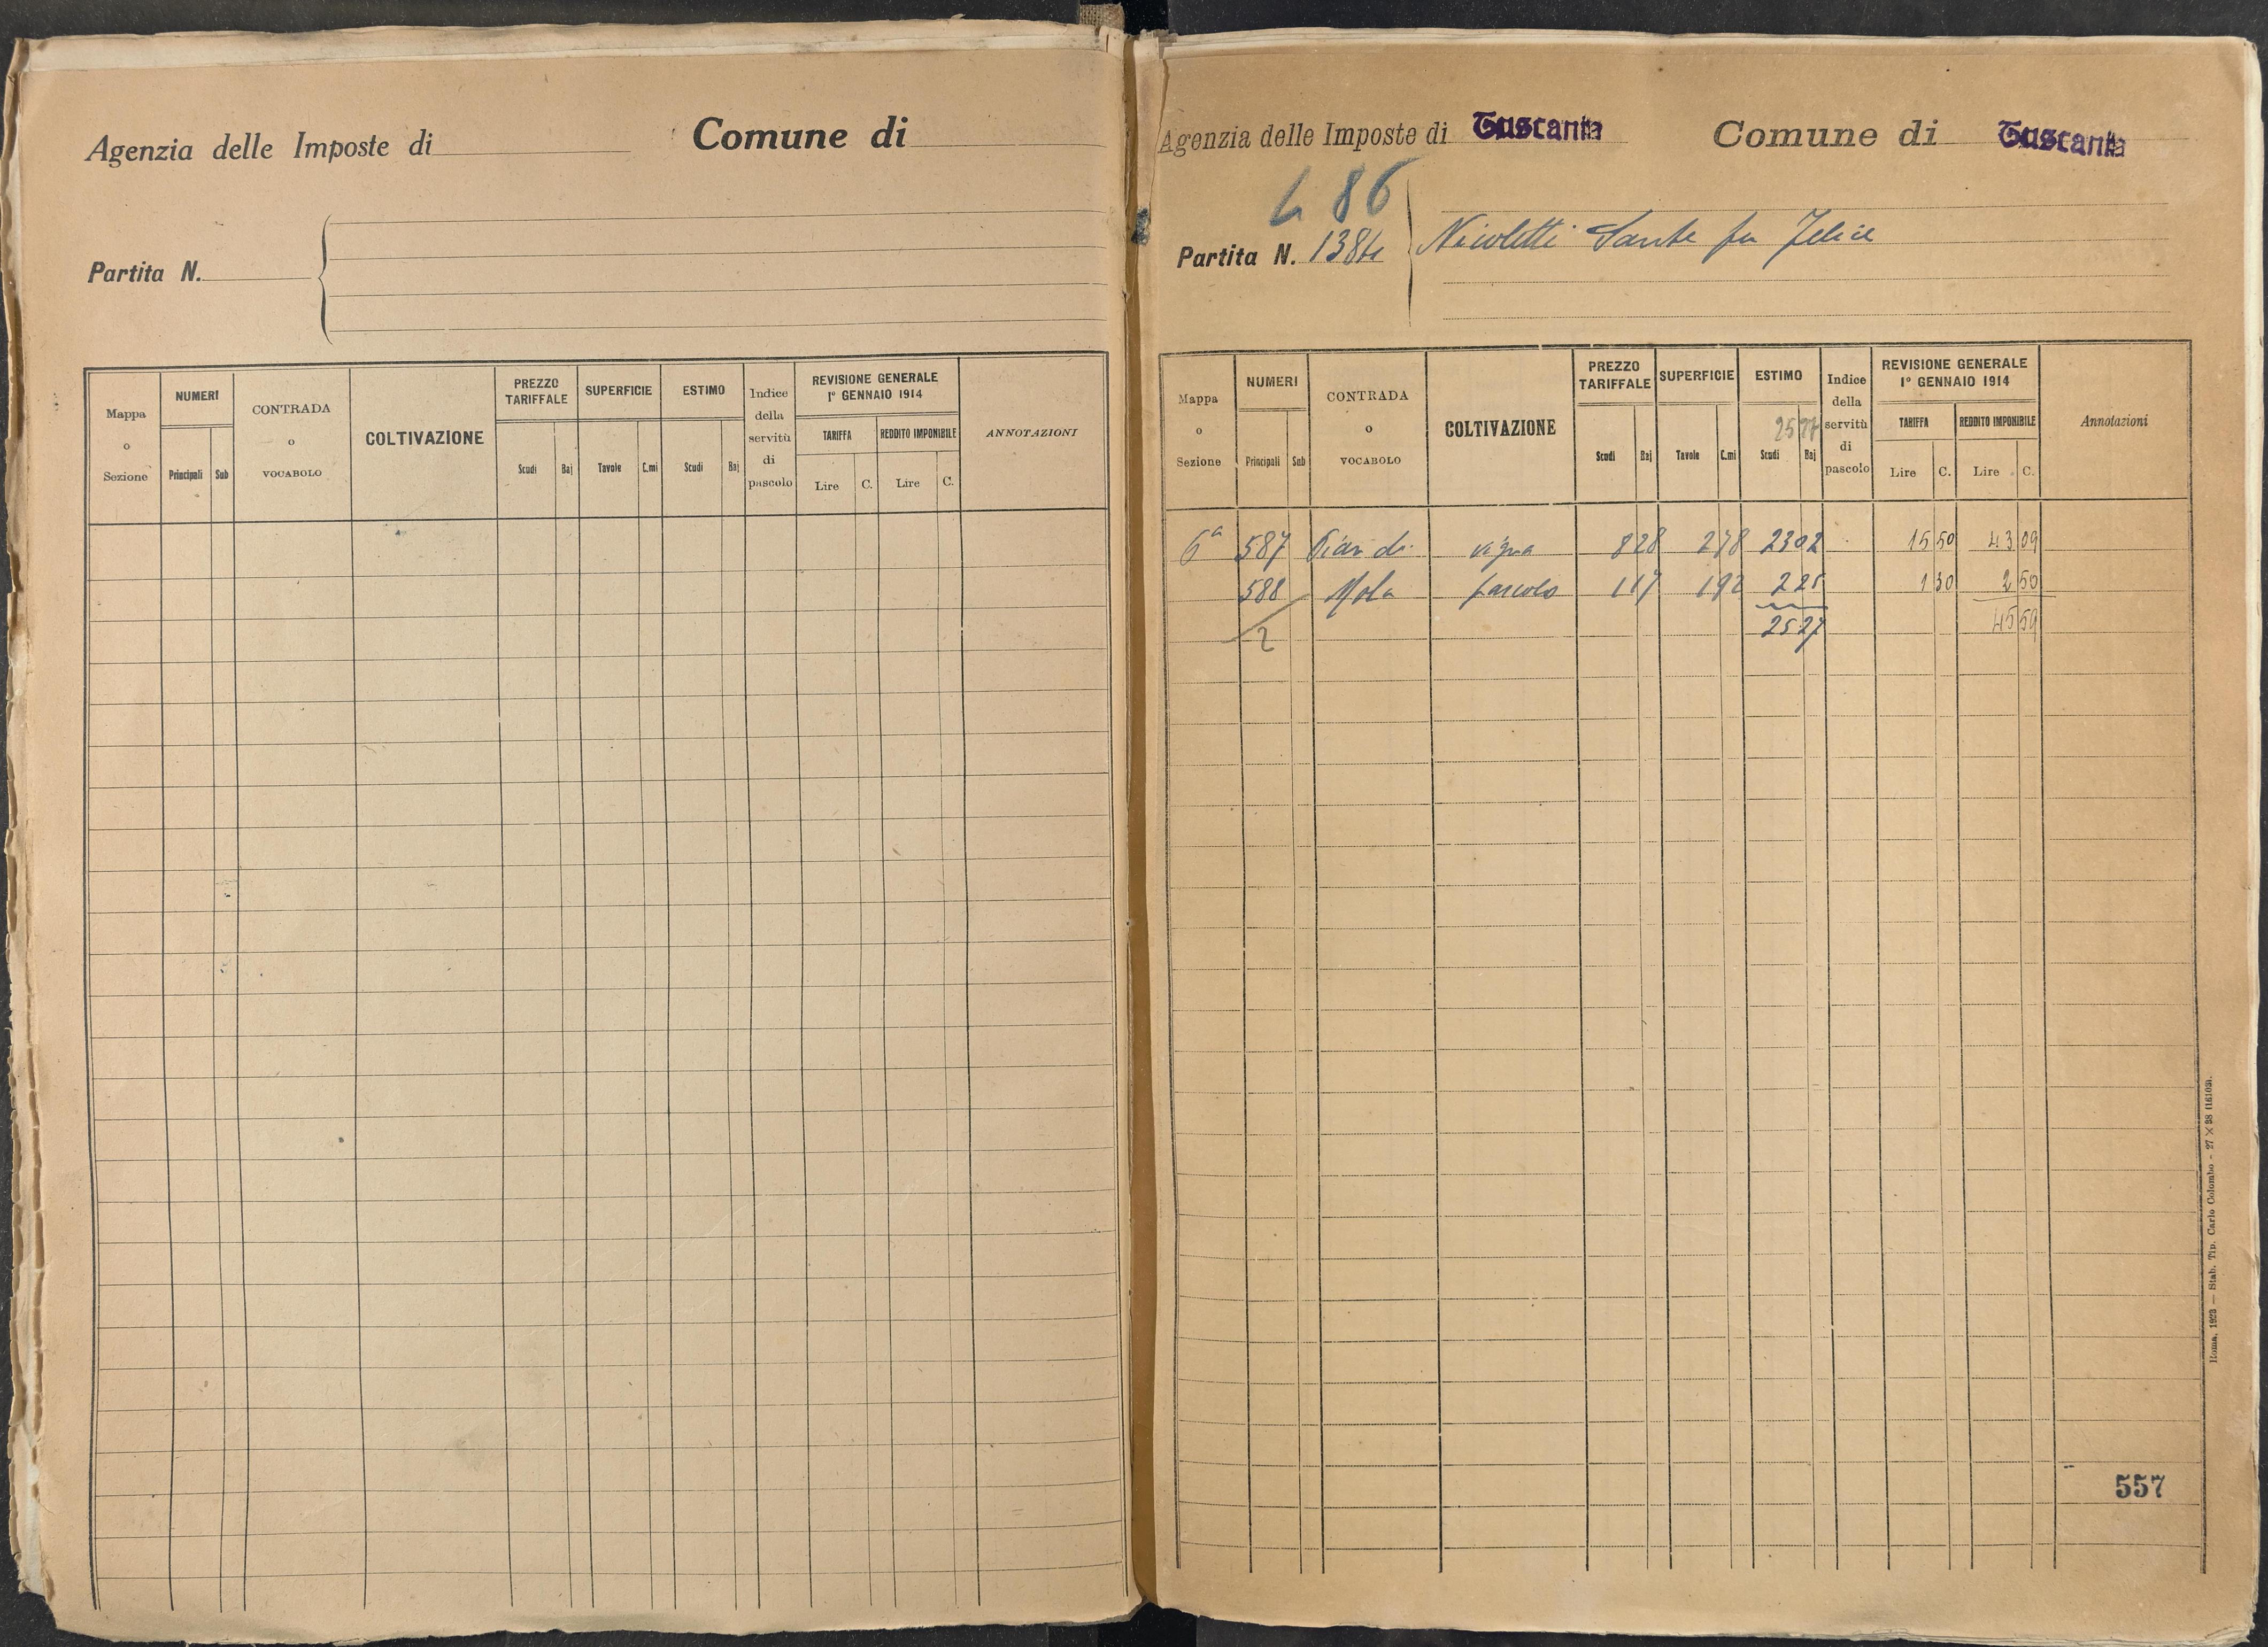 Agenzia delle Imposte di Comune di
Partita N.
Mappa o Sezione NUMERI Principali Sub CONTRADA o VOCABOLO COLTIVAZIONE PREZZO TARIFFALE Scudi Baj SUPERFICIE Tavole C.mi ESTIMO Scudi Baj Indice della servitù di pascolo REVISIONE GENERALE 1° GENNAIO 1914 TARIFFA Lire C. REDDITO IMPONIBILE Lire C. ANNOTAZIONI
Agenzia delle Imposte di Tuscania Comune di Tuscania
486
Partita N. 1384 Nicoletti Sante fu Felice
Mappa o Sezione NUMERI Principali Sub CONTRADA o VOCABOLO COLTIVAZIONE PREZZO TARIFFALE Scudi Baj SUPERFICIE Tavole C.mi ESTIMO 25 27 Scudi Baj Indice della servitù di pascolo REVISIONE GENERALE 1° GENNAIO 1914 TARIFFA Lire C. REDDITO IMPONIBILE Lire C. Annotazioni
6a 587 Pian di vigna 828 278 2302 15 50 43 09
588 Mola pascolo 117 192 225 1 30 2 50
2 2527 45 59
557
Roma, 1923 — Stab. Tip. Carlo Colombo - 27 X 38 (1610).